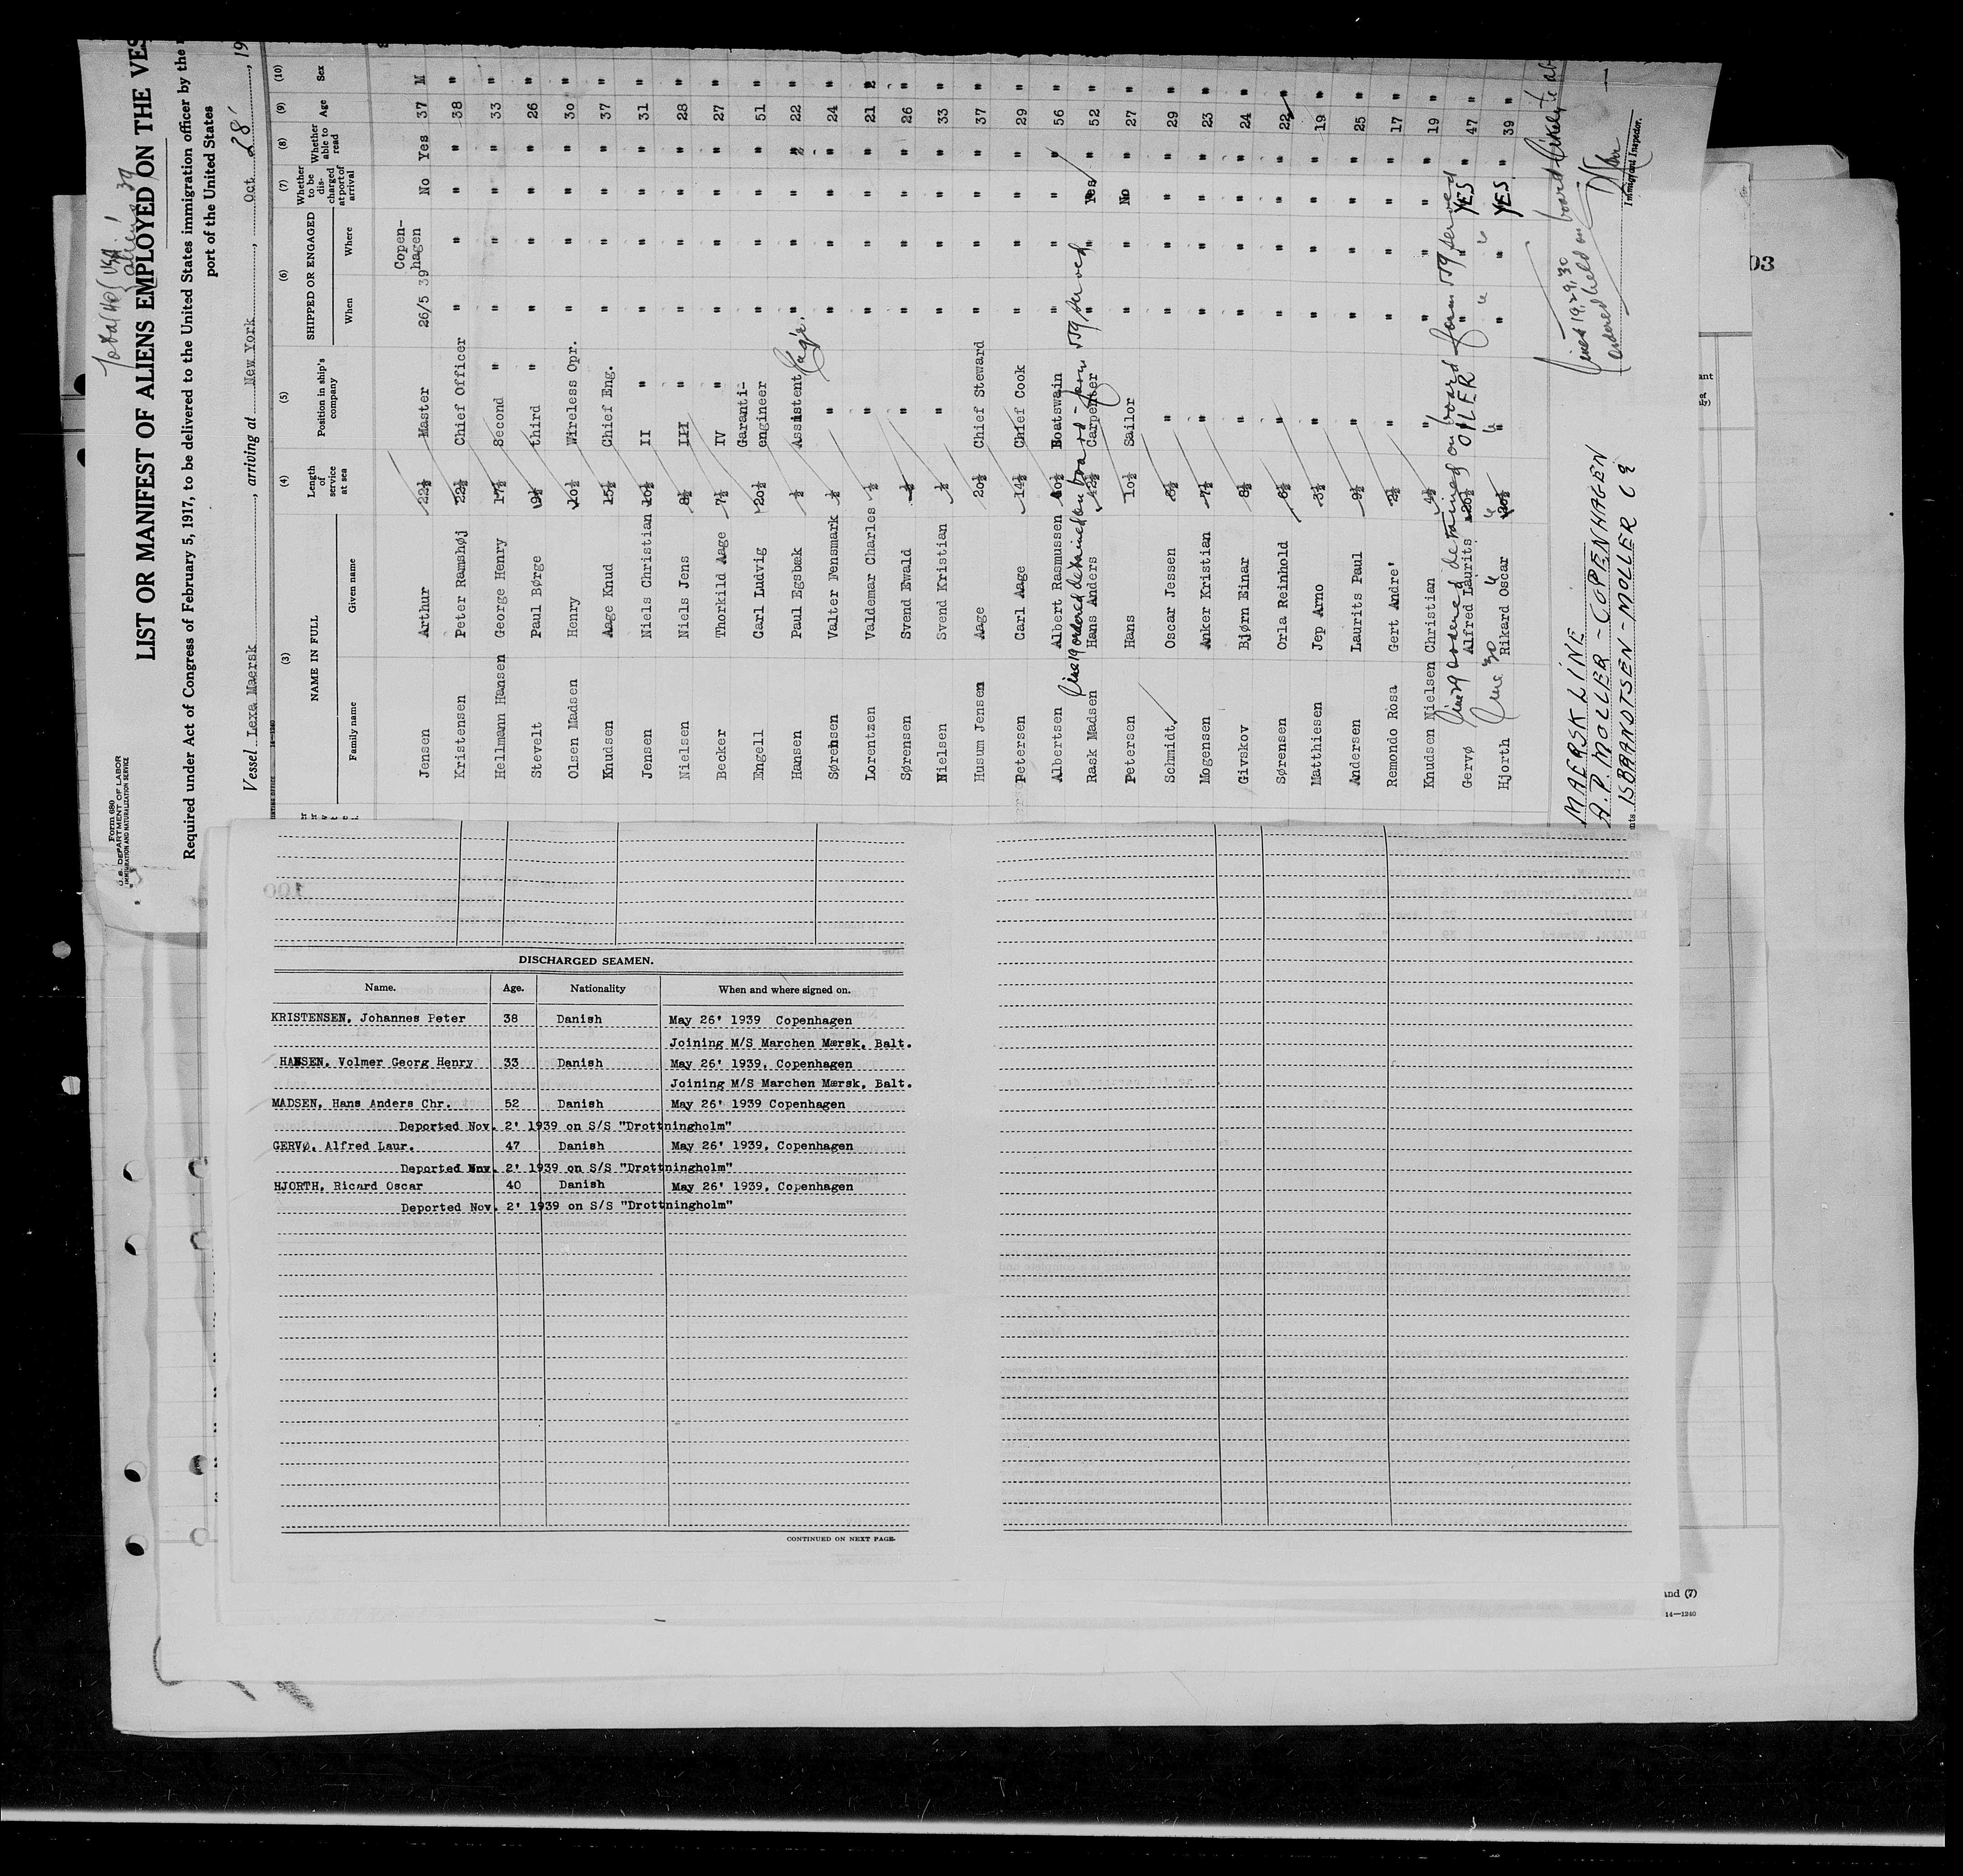 Total 40 { 1 USA
39 aliens
Form 680
U. S. DEPARTMENT OF LABOR
IMMIGRATION AND NATURALIZATION SERVICE
LIST OR MANIFEST OF ALIENS EMPLOYED ON THE VES
Required under Act of Congress of February 5, 1917, to be delivered to the United States immigration officer by the
port of the United States
Vessel Lexa Maersk, arriving at New York, Oct. 28, 19
(3) (4) (5) (6) (7) (8) (9) (10)
NAME IN FULL Length of service at sea Position in ship's company SHIPPED OR ENGAGED Whether to be discharged at port of arrival Whether able to read Age Sex
Family name Given name When Where
Jensen Arthur 22½ Master 26/5 39 Copenhagen No Yes 37 M
Kristensen Peter Ramshøj 22½ Chief Officer " " " " 38 "
Hellmann Hansen George Henry 17½ Second " " " " " 33 "
Stevelt Paul Børge 9½ third " " " " " 26 "
Olsen Madsen Henry 10½ Wireless Opr. " " " " 30 "
Knudsen Aage Knud 15½ Chief Eng. " " " " 37 "
Jensen Niels Christian 10½ II " " " " " 31 "
Nielsen Niels Jens 8½ III " " " " " 28 "
Becker Thorkild Aage 7½ IV " " " " " 27 "
Engell Carl Ludvig 20½ Garanti-engineer " " " " 51 "
Hansen Paul Egsbæk ½ Assistent " " " " 22 "
Sørensen Valter Fensmark ½ " " " " " 24 "
Lorentzen Valdemar Charles ½ " " " " " 21 "
Sørensen Svend Ewald ½ " " " " " 26 "
Nielsen Svend Kristian ½ " " " " " 33 "
Husum Jensen Aage 20½ Chief Steward " " " " 37 "
Petersen Carl Aage 14½ Chief Cook " " " " 29 "
Albertsen Albert Rasmussen 40½ Boatswain " " " " 56 "
line 19 ordered detained on board - form 559 served
Rask Madsen Hans Anders 42½ Carpenter " " Yes " 52 "
Petersen Hans 10½ Sailor " " No " 27 "
Schmidt Oscar Jessen 8½ " " " " " 29 "
Mogensen Anker Kristian 7½ " " " " " 23 "
Givskov Bjørn Einar 8½ " " " " " 24 "
Sørensen Orla Reinhold 6½ " " " " " 22 "
Matthiesen Jep Arno 3½ " " " " " 19 "
Andersen Laurits Paul 9½ " " " " " 25 "
Remondo Rosa Gert Andre' 2½ " " " " " 17 "
Knudsen Nielsen Christian 4½ " " " " " 19 "
line 29 ordered detained on board form 559 served
Gervø Alfred Laurits 20½ OILER " " YES " 47 "
line 30 " " " "
Hjorth Rikard Oscar 20½ " " " YES " 39 "
lines 19, 29, 30
ordered held on board
Immigrant Inspector.
MAERSK LINE
A. P. MOLLER - COPENHAGEN
ISBRANDTSEN - MOLLER Co
03
DISCHARGED SEAMEN.
Name. Age. Nationality When and where signed on.
KRISTENSEN, Johannes Peter 38 Danish May 26' 1939 Copenhagen
Joining M/S Marchen Mærsk, Balt.
HANSEN, Volmer Georg Henry 33 Danish May 26' 1939, Copenhagen
Joining M/S Marchen Mærsk, Balt.
MADSEN, Hans Anders Chr. 52 Danish May 26' 1939 Copenhagen
Deported Nov. 2' 1939 on S/S "Drottningholm"
GERVØ, Alfred Laur. 47 Danish May 26' 1939, Copenhagen
Deported Nov. 2' 1939 on S/S "Drottningholm"
HJORTH, Ricard Oscar 40 Danish May 26' 1939, Copenhagen
Deported Nov. 2' 1939 on S/S "Drottningholm"
CONTINUED ON NEXT PAGE.
and (7)
14—1240